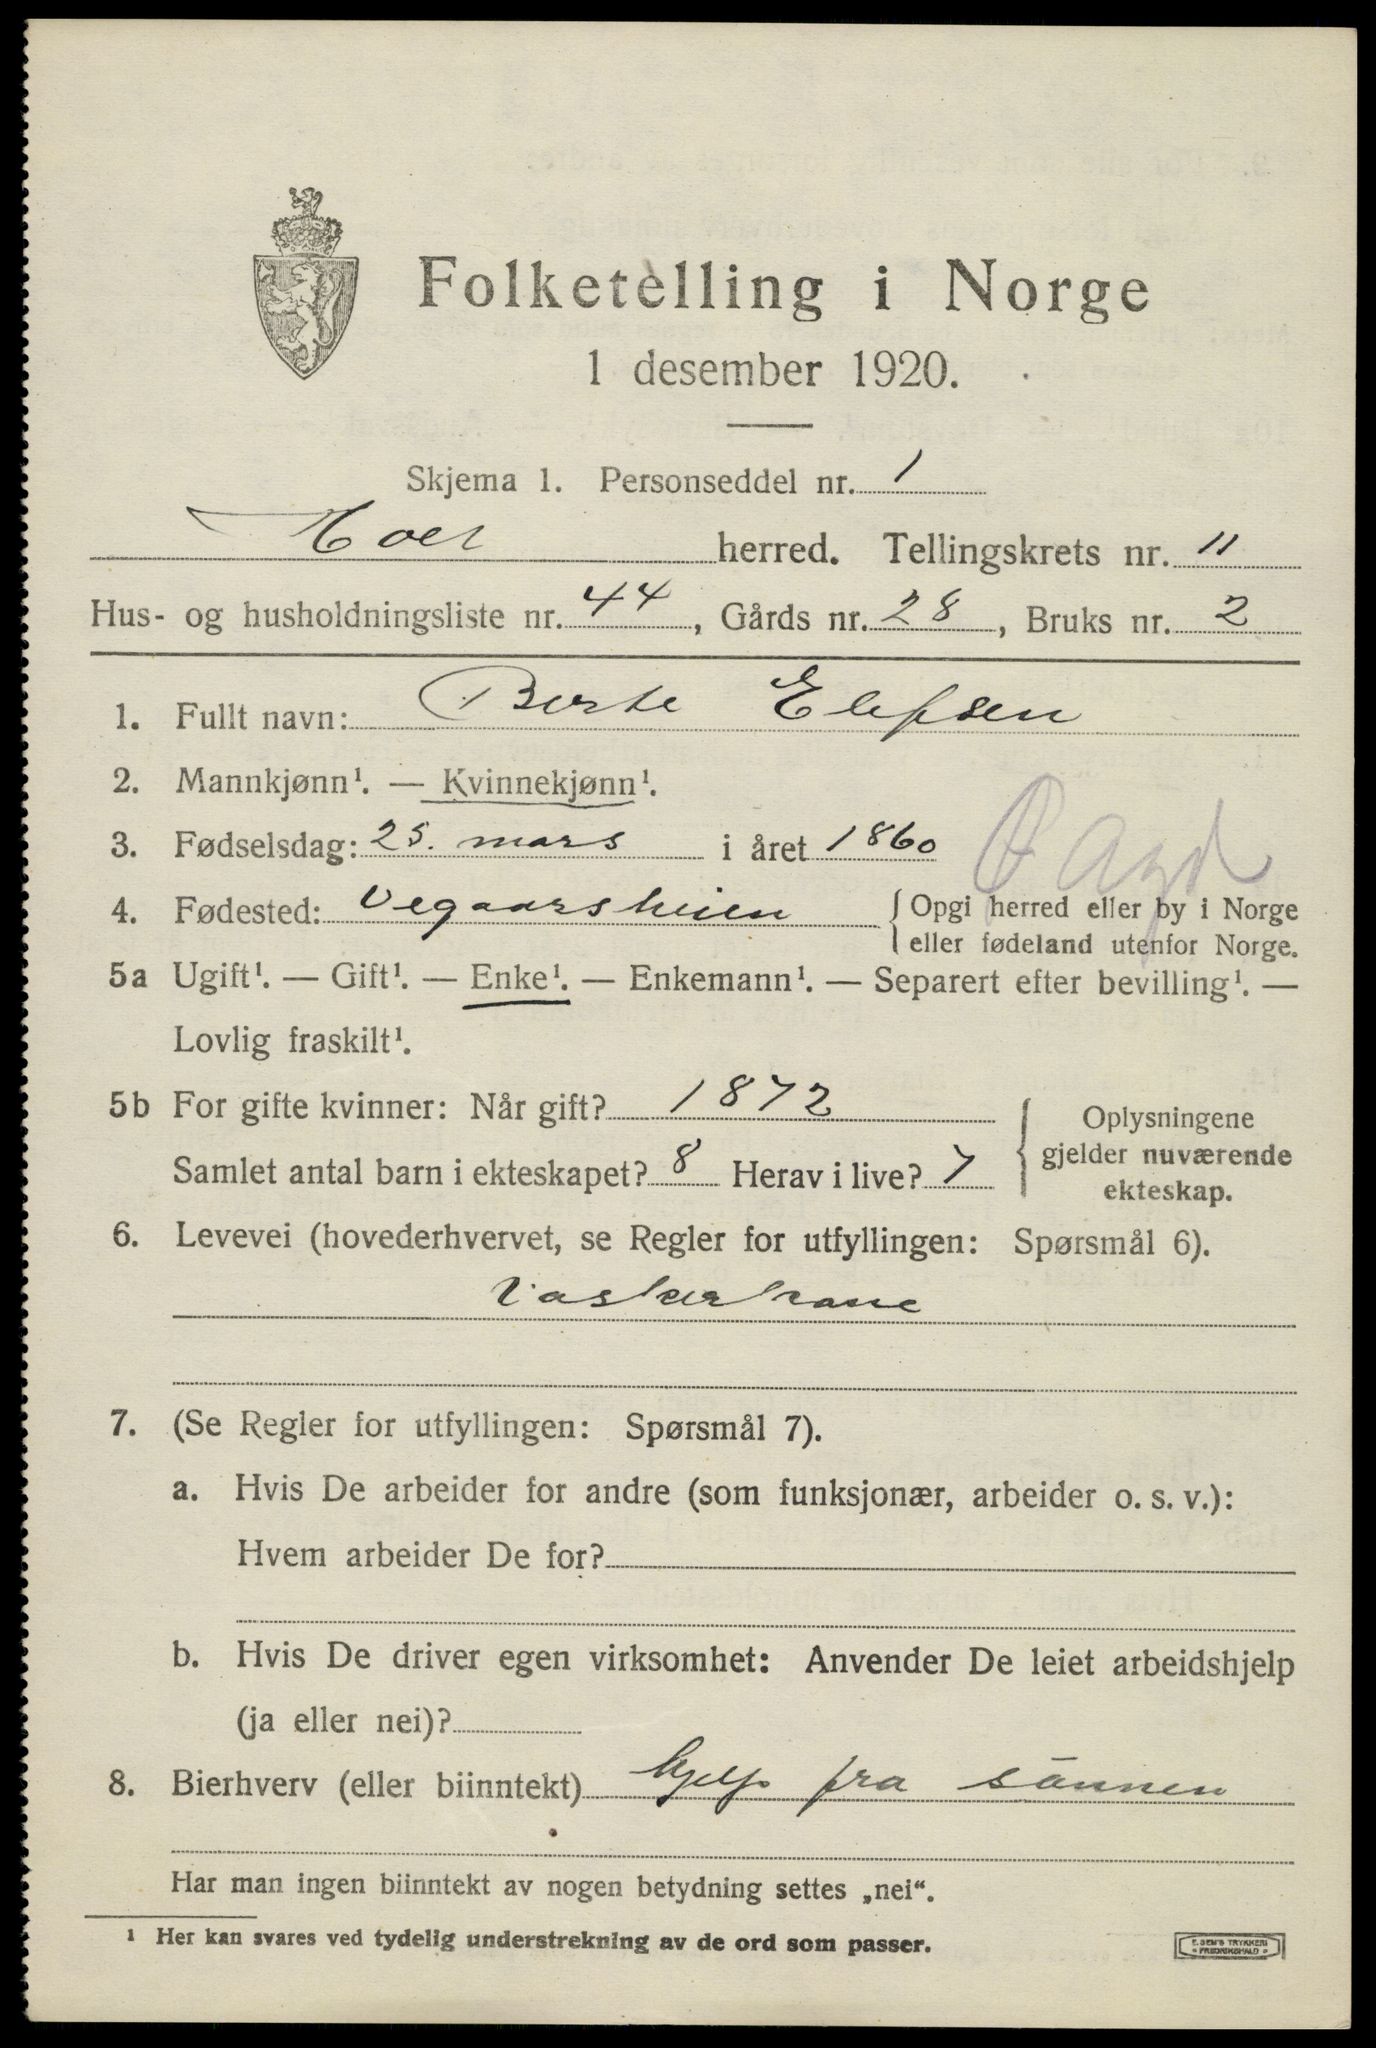 Folketelling i Norge
1 desember 1920.
Skjema 1. Personseddel nr. 1
herred. Tellingskrets nr. 11
Hus- og husholdningsliste nr. 44, Gårds nr. 28, Bruks nr. 2
1. Fullt navn: Berte Elefsen
2. Mannkjønn¹. — Kvinnekjønn¹.
3. Fødselsdag: 25. mars i året 1860
4. Fødested: Vegaarsheien { Opgi herred eller by i Norge
eller fødeland utenfor Norge.
Ø Agd
5a Ugift¹. — Gift¹. — Enke¹. — Enkemann¹. — Separert efter bevilling¹. —
Lovlig fraskilt¹.
5b For gifte kvinner: Når gift? 1872
Samlet antal barn i ekteskapet? 8 Herav i live? 7
{ Oplysningene
gjelder nuværende
ekteskap.
6. Levevei (hovederhvervet, se Regler for utfyllingen: Spørsmål 6).
Vaskerkone
7. (Se Regler for utfyllingen: Spørsmål 7).
a. Hvis De arbeider for andre (som funksjonær, arbeider o. s. v.):
Hvem arbeider De for?
b. Hvis De driver egen virksomhet: Anvender De leiet arbeidshjelp
(ja eller nei)?
8. Bierhverv (eller biinntekt) hjelp fra sönnen
Har man ingen biinntekt av nogen betydning settes „nei“.
¹ Her kan svares ved tydelig understrekning av de ord som passer.
E. SEM'S TRYKKERI
FREDRIKSHALD